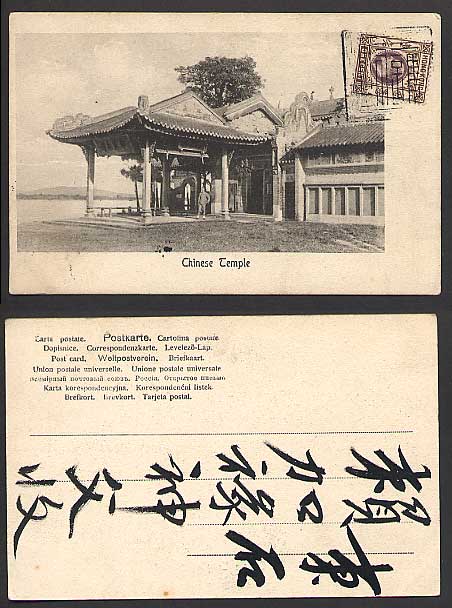 Chinese Temple
Carta postale. Postkarte. Cartolina postale
Dopisnice. Correspondenzkarte. Levelező-Lap.
Post card. Weltpostverein. Briefkaart.
Union postale universelle. Unione postale universale
Всемірный почтовый союзъ. Россія. Открытое письмо.
Karta korespondencyjna. Korespondenční lístek.
Brefkort. Brevkort. Tarjeta postal.
神父收